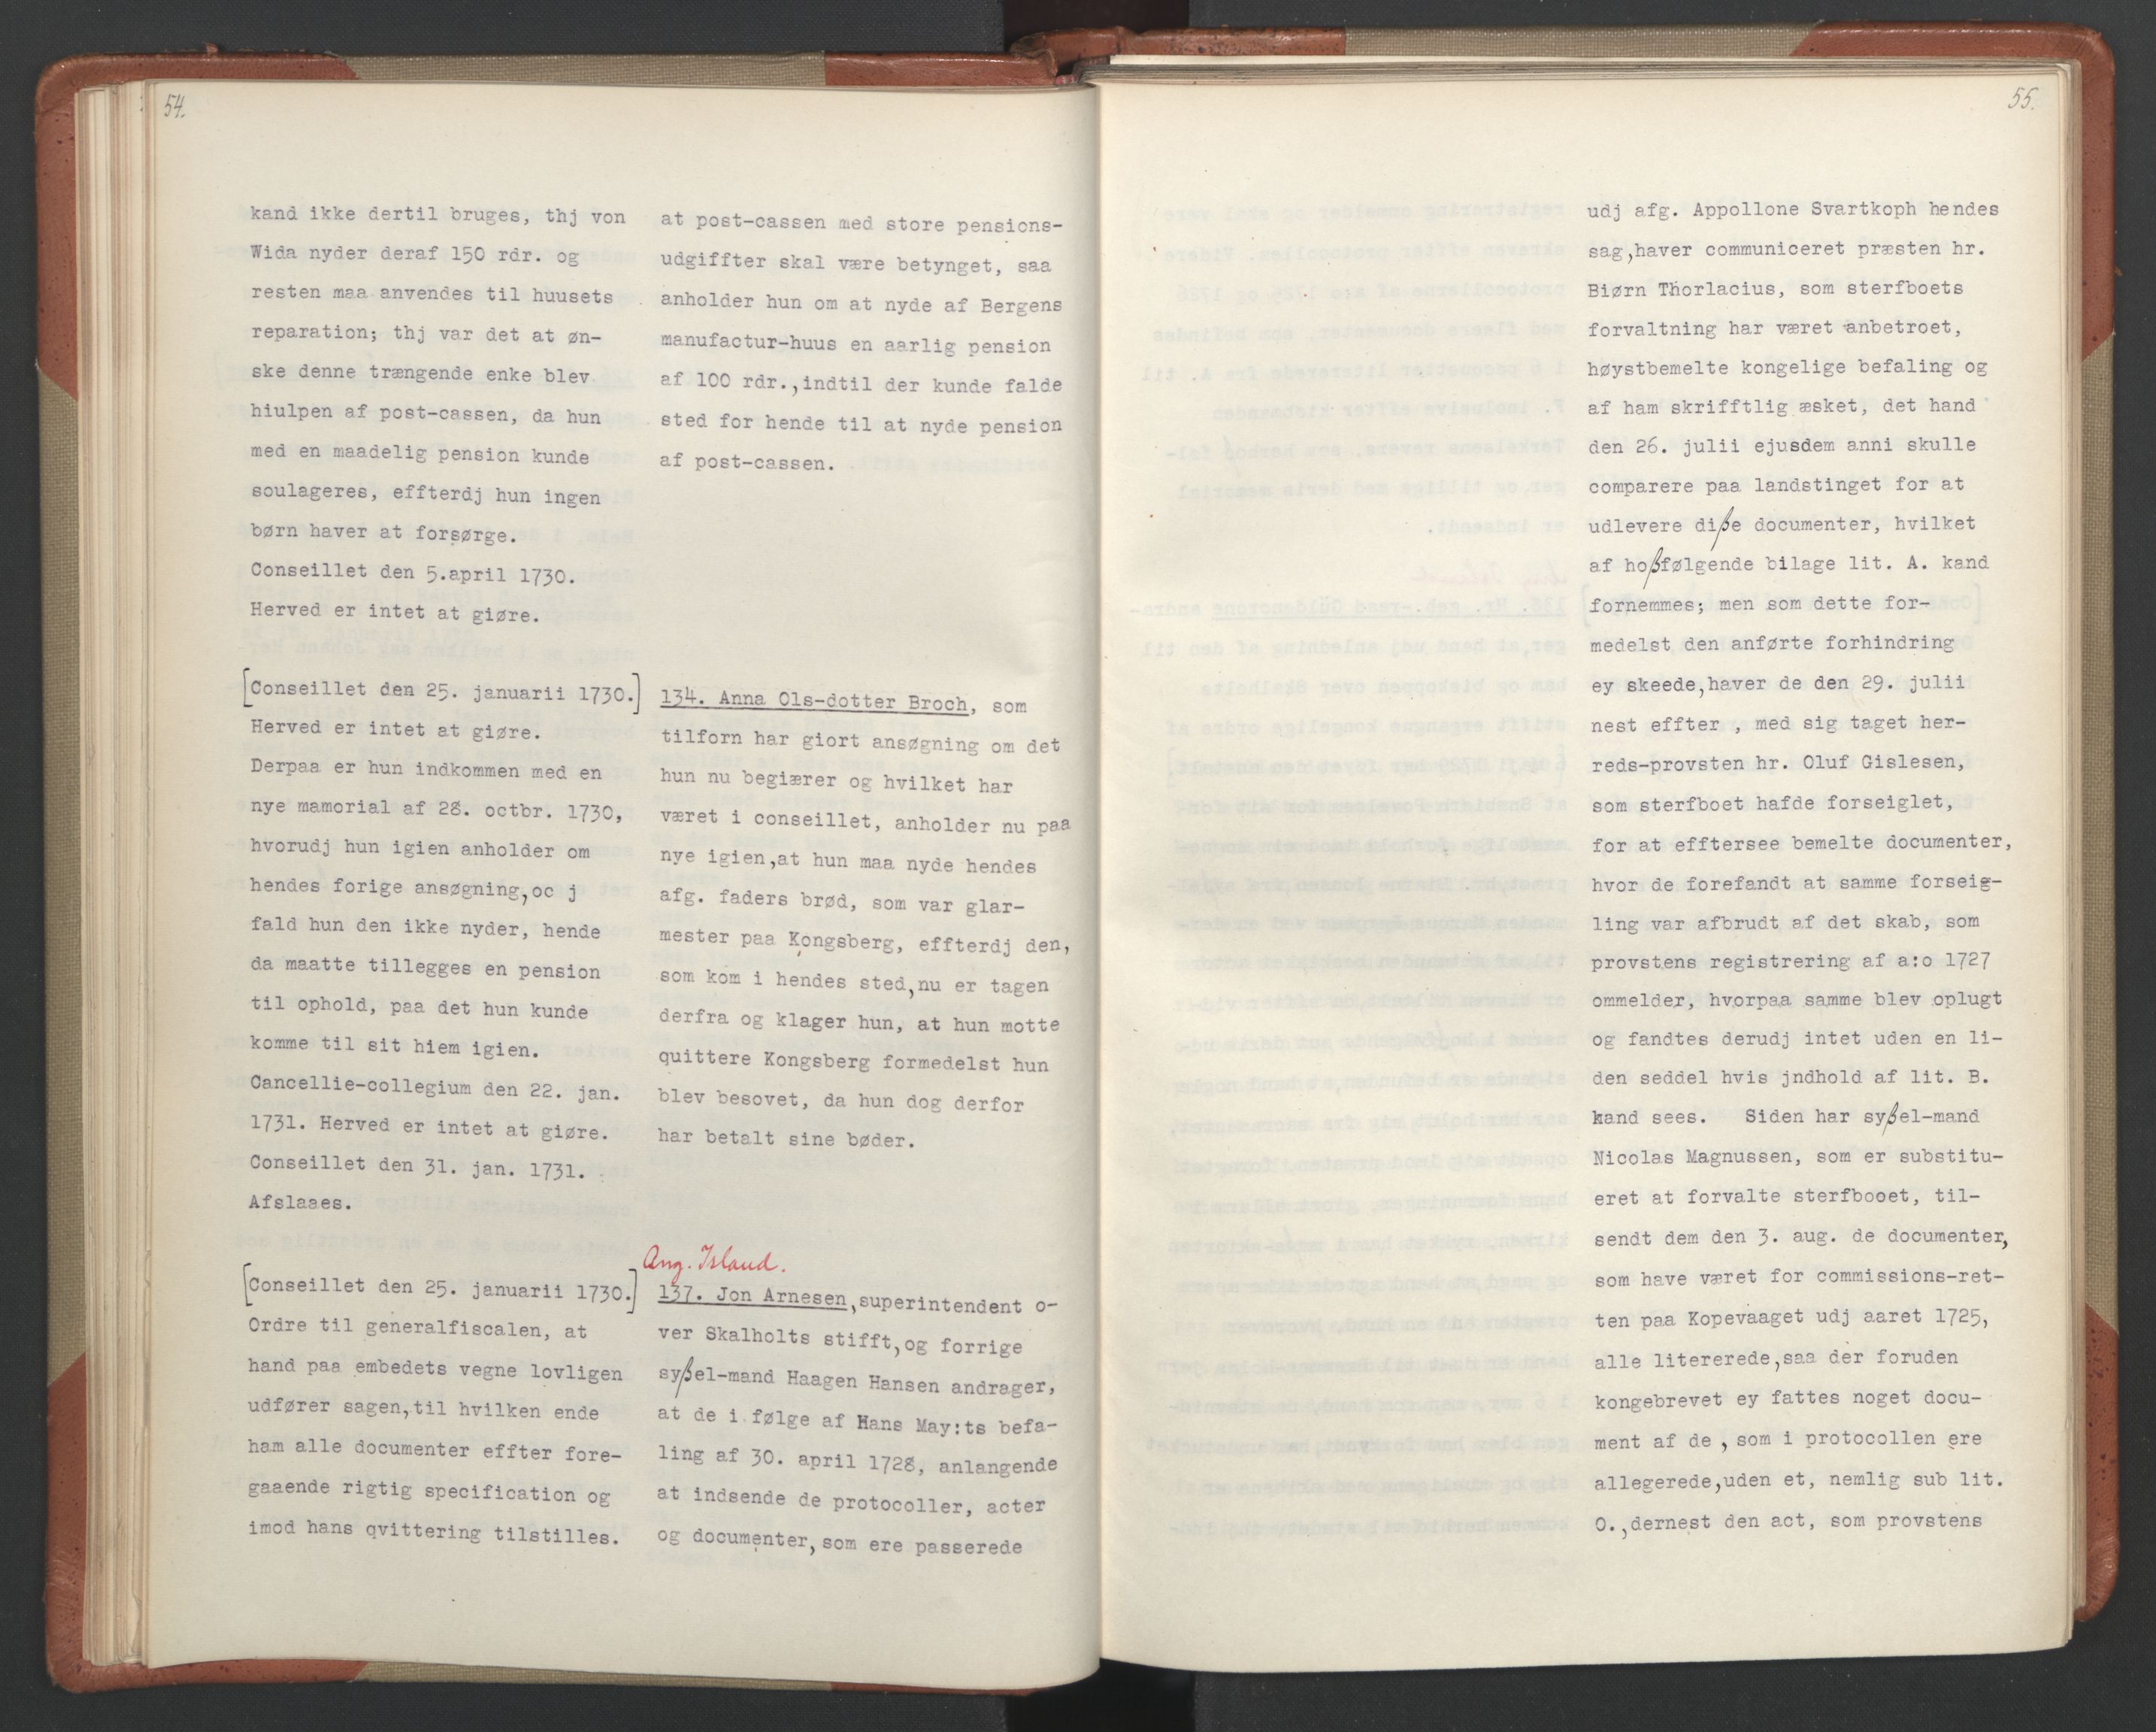 54.
kand ikke dertil bruges, thj von
Wida nyder deraf 150 rdr. og
resten maa anvendes til huusets
reparation; thj var det at øn-
ske denne trængende enke blev
hiulpen af post-cassen, da hun
med en maadelig pension kunde
soulageres, effterdj hun ingen
børn haver at forsørge.
Conseillet den 5.april 1730.
Herved er intet at giøre.
at post-cassen med store pensions-
udgiffter skal være betynget, saa
anholder hun om at nyde af Bergens
manufactur-huus en aarlig pension
af 100 rdr.,indtil der kunde falde
sted for hende til at nyde pension
af post-cassen.
[Conseillet den 25. januarii 1730.]
Herved er intet at giøre.
Derpaa er hun indkommen med en
nye mamorial af 28. octbr. 1730,
hvorudj hun igien anholder om
hendes forige ansøgning,oc j
fald hun den ikke nyder, hende
da maatte tillegges en pension
til ophold, paa det hun kunde
komme til sit hiem igien.
Cancellie-collegium den 22. jan.
1731. Herved er intet at giøre.
Conseillet den 31. jan. 1731.
Afslaaes.
134. Anna Ols-dotter Broch, som
tilforn har giort ansøgning om det
hun nu begiærer og hvilket har
været i conseillet, anholder nu paa
nye igien,at hun maa nyde hendes
afg. faders brød, som var glar-
mester paa Kongsberg, effterdj den,
som kom i hendes sted,nu er tagen
derfra og klager hun, at hun motte
quittere Kongsberg formedelst hun
blev besovet, da hun dog derfor
har betalt sine bøder.
[Conseillet den 25. januarii 1730.]
Ordre til generalfiscalen, at
hand paa embedets vegne lovligen
udfører sagen,til hvilken ende
ham alle documenter effter fore-
gaaende rigtig specification og
imod hans qvittering tilstilles.
Ang. Island.
137. Jon Arnesen,superintendent o-
ver Skalholts stifft,og forrige
syßel-mand Haagen Hansen andrager,
at de i følge af Hans May:ts befa-
ling af 30. april 1728, anlangende
at indsende de protocoller, acter
og documenter,som ere passerede
55.
udj afg. Appollone Svartkoph hendes
sag,haver communiceret præsten hr.
Biørn Thorlacius, som sterfboets
forvaltning har været anbetroet,
høystbemelte kongelige befaling og
af ham skrifftlig æsket, det hand
den 26. julii ejusdem anni skulle
comparere paa landstinget for at
udlevere diße documenter, hvilket
af hoßfølgende bilage lit. A. kand
fornemmes; men som dette for-
medelst den anførte forhindring
ey skeede,haver de den 29. julii
nest effter , med sig taget her-
reds-provsten hr. Oluf Gislesen,
som sterfboet hafde forseiglet,
for at efftersee bemelte documenter,
hvor de forefandt at samme forseig-
ling var afbrudt af det skab, som
provstens registrering af a:o 1727
ommelder, hvorpaa samme blev oplugt
og fandtes derudj intet uden en li-
den seddel hvis jndhold af lit. B.
kand sees. Siden har syßel-mand
Nicolas Magnussen, som er substitu-
eret at forvalte sterfbooet, til-
sendt dem den 3. aug. de documenter,
som have været for commissions-ret-
ten paa Kopevaaget udj aaret 1725,
alle litererede,saa der foruden
kongebrevet ey fattes noget docu-
ment af de , som i protocollen ere
allegerede,uden et, nemlig sub lit.
O.,dernest den act, som provstens